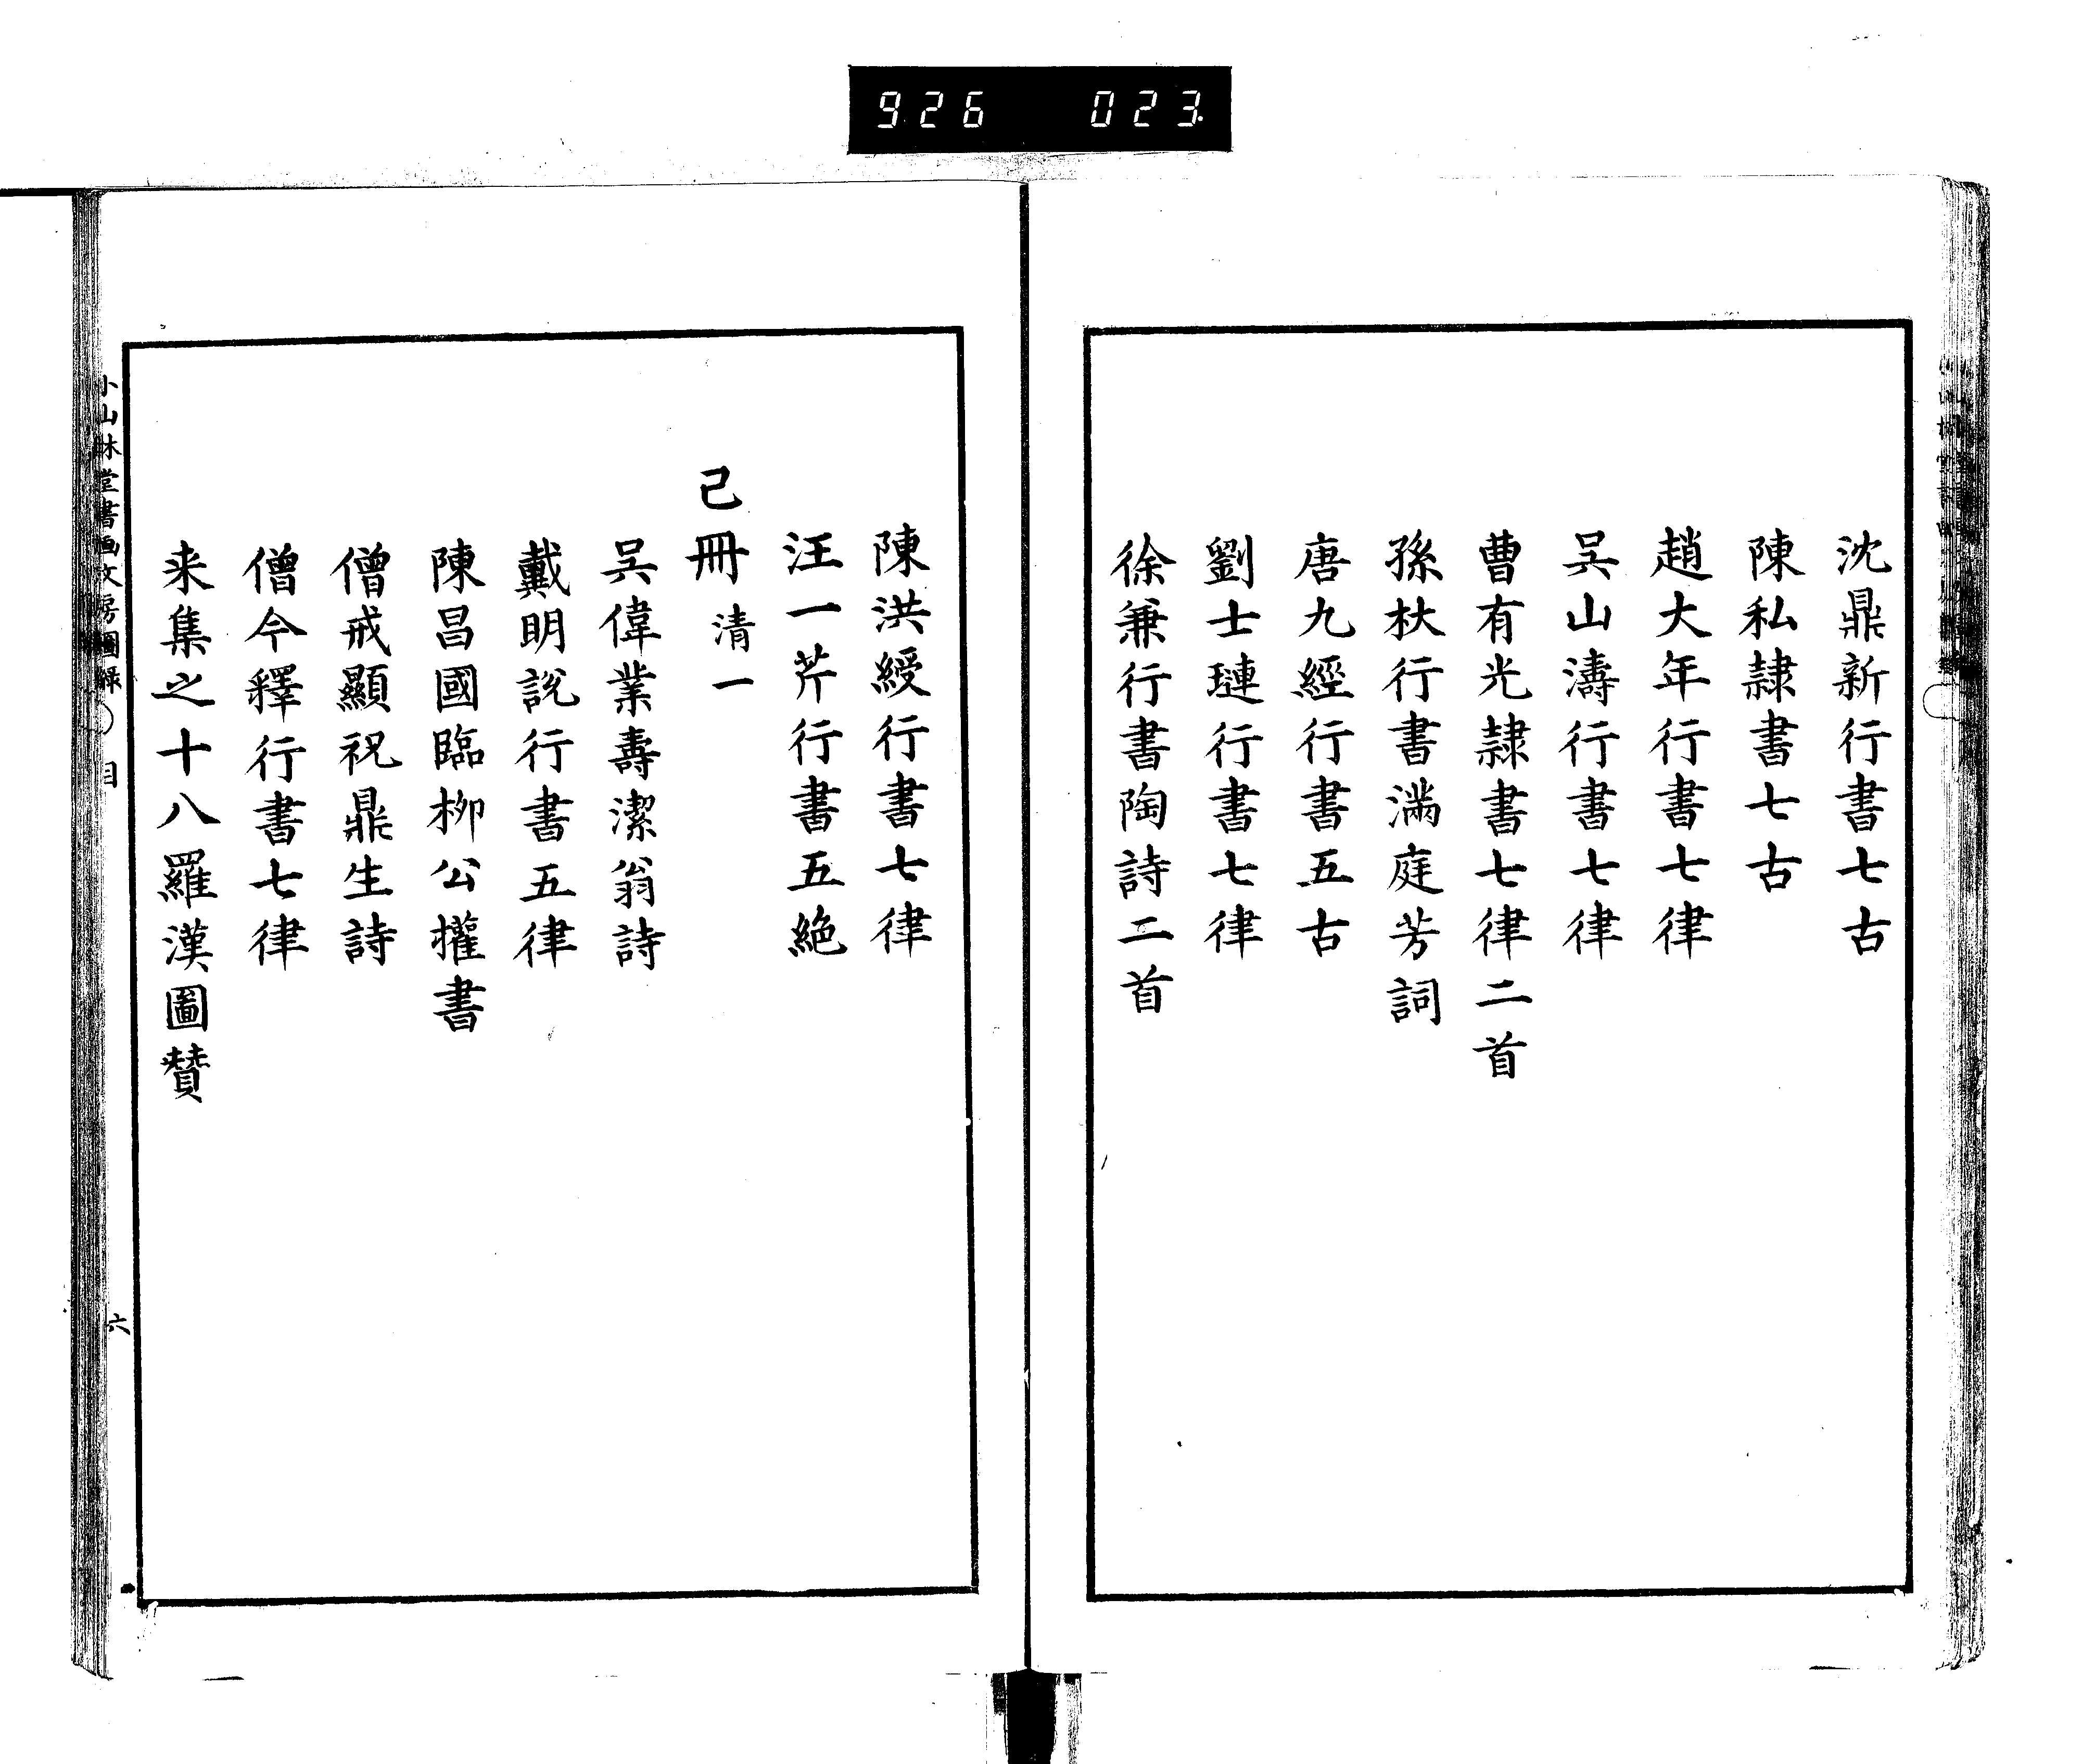 926 023
沈鼎新行書七古
陳私隷書七古
趙大年行書七律
吴山濤行書七律
曹有光隷書七律二首
孫杕行書滿庭芳詞
唐九經行書五古
劉士璉行書七律
徐兼行書陶詩二首
陳洪綬行書七律
汪一芹行書五絶
己冊 清一
吴偉業壽潔翁詩
戴明説行書五律
陳昌國臨柳公權書
僧戒顯祝鼎生詩
僧今釋行書七律
来集之十八羅漢圖賛
小山林堂書画文房圖錄 目
六